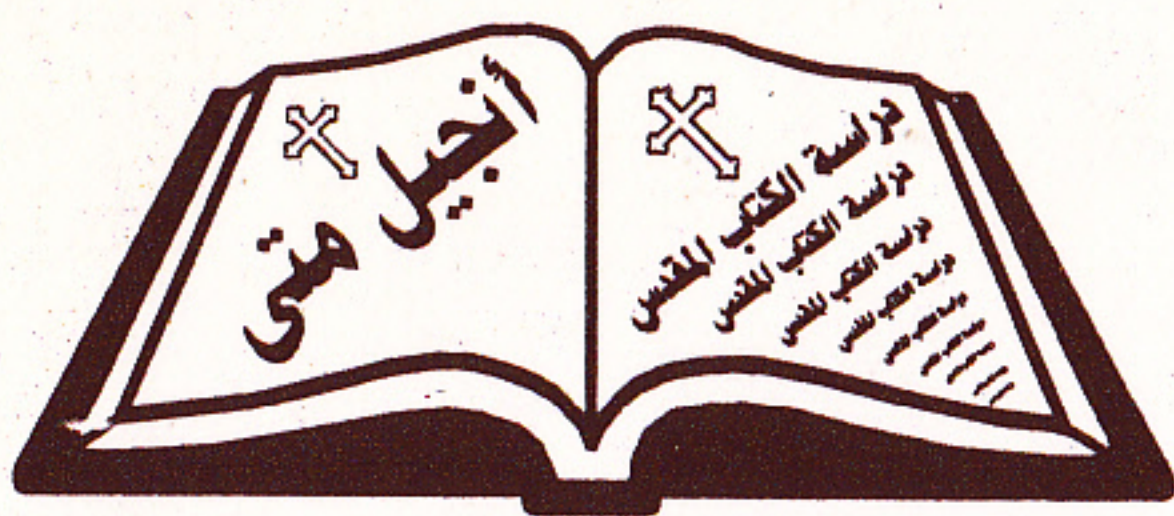 دراسة الكتاب المقدس
دراسة الكتاب المقدس
دراسة الكتاب المقدس
دراسة الكتاب المقدس
دراسة الكتاب المقدس
أنجيل متى